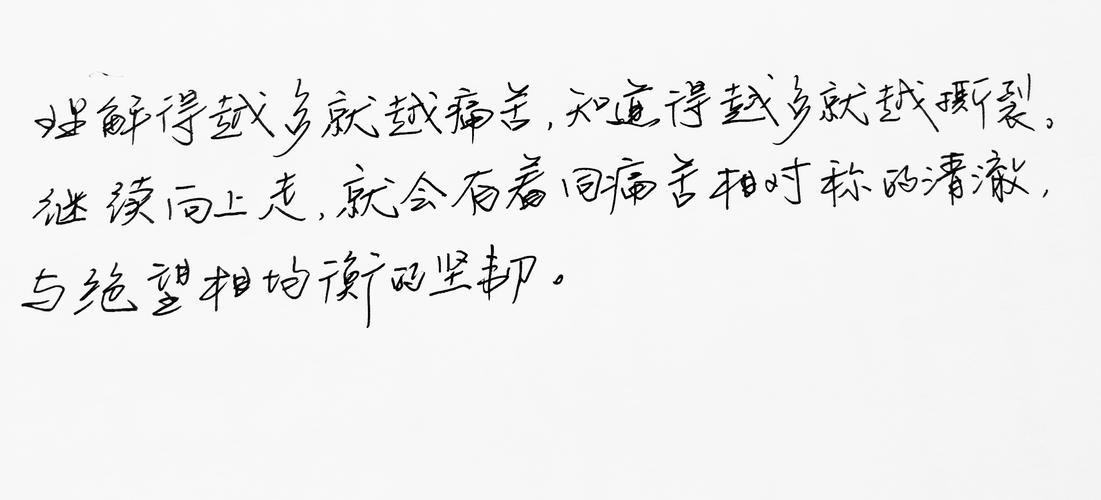 理解得越多就越痛苦,知道得越多就越撕裂。
继续向上走,就会有着同痛苦相对称的清澈,
与绝望相均衡的坚韧。